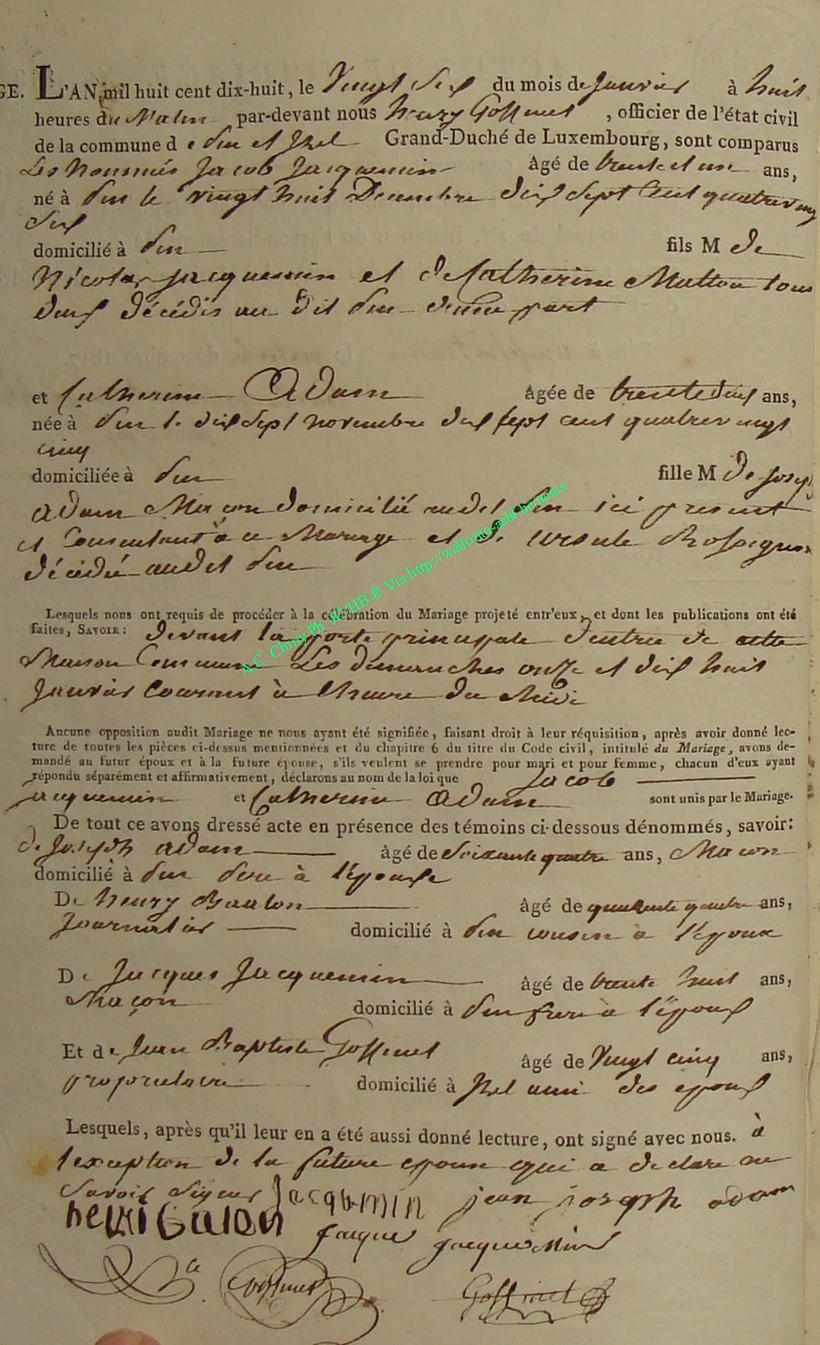 GE. L'AN mil huit cent dix-huit, le Vingt six du mois de Janvier à huit
heures du Matin par-devant nous henry Goffinet, officier de l'état civil
de la commune d e sin et Izel Grand-Duché de Luxembourg, sont comparus
Les Nommés Jacob Jacquemin âgé de trente et un ans,
né à sin le vingt huit Decembre dix sept Cent quatre ving
six
domicilié à sin fils M de
Nicolas Jacquemin et de Catherine Mutton tous
deux décédés au dit sin d'une part
et Catherine Adam âgée de trente deux ans,
née à sin le dix sept novembre dix sept cent quatre vingt
cinq
domiciliée à sin fille M de Josep
Adam Maçon domicilié audit sin ici présent
et Consentant à ce Mariage et de Ursule
décédé audit sin
Lesquels nous ont requis de procéder à la célébration du Mariage projeté entr'eux, et dont les publications ont été
faites, SAVOIR: devant la porte principale d'entrée de cette
Maison Commune Les dimanches onze et dix huit
Janvier Courant à l'heure de Midi
A-C Chiny Ph. JC HB & Via http://wallonia-asbl.be/actes
Aucune opposition audit Mariage ne nous ayant été signifiée, faisant droit à leur réquisition, après avoir donné lec-
ture de toutes les pièces ci-dessus mentionnées et du chapitre 6 du titre du Code civil, intitulé du Mariage, avons de-
mandé au futur époux et à la future épouse, s'ils veulent se prendre pour mari et pour femme, chacun d'eux ayant
répondu séparément et affirmativement, déclarons au nom de la loi que Jacob
Jacquemin et Catherine Adam sont unis par le Mariage.
De tout ce avons dressé acte en présence des témoins ci-dessous dénommés, savoir:
de Joseph Adam âgé de soixante quatre ans, Maçon
domicilié à sin père à l'épouse
De henry âgé de quarante quatre ans,
Journalier domicilié à sin cousin à l'époux
De Jacques Jacquemin âgé de trente huit ans,
Maçon domicilié à sin frère à l'époux
Et de Jean Baptiste Goffinet âgé de Vingt cinq ans,
proprietaire domicilié à Izel ami des epoux
Lesquels, après qu'il leur en a été aussi donné lecture, ont signé avec nous. à
l'exception de la future epouse qui a declaré ne
savoir signer Jacqemin jean joseph adam
henri jacque jacquemin
Goffinet Goffinet